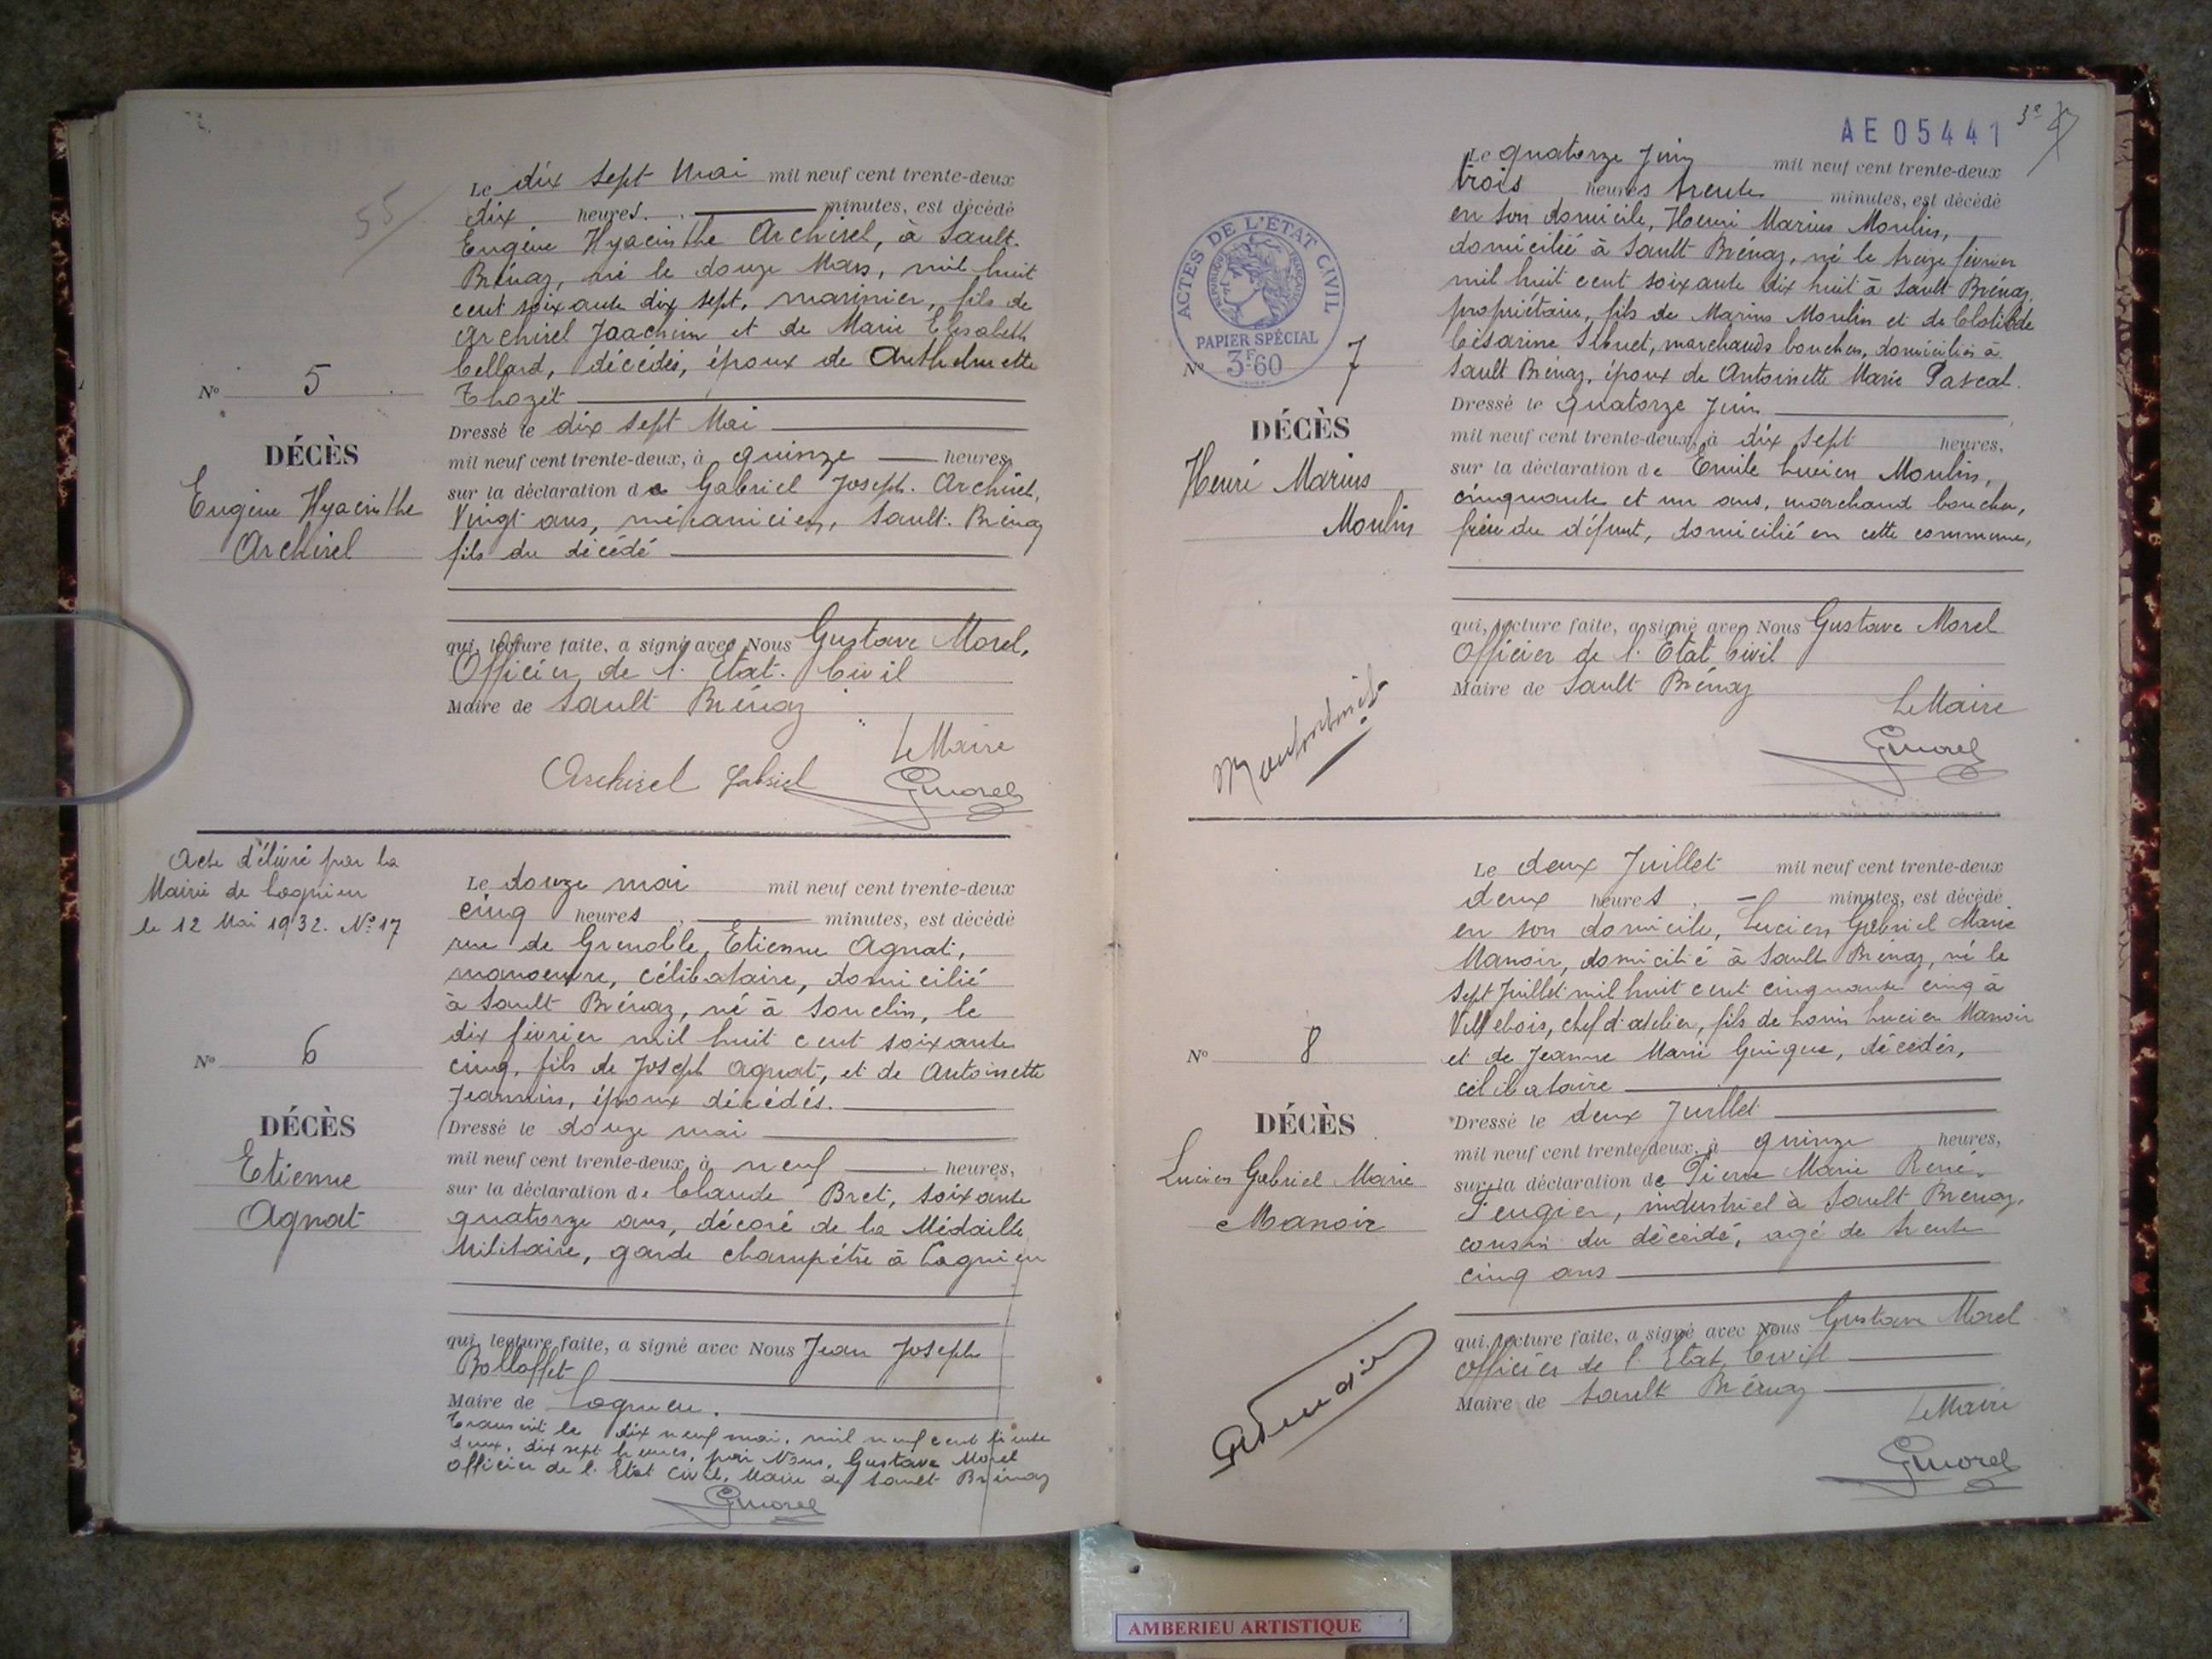 55
Le dix sept Mai mil neuf cent trente-deux
dix heures. minutes, est décédé
Eugène Hyacinthe Archirel, à Sault-
Brénaz, né le douze Mars, mil huit
cent soixante dix sept, marinier, fils de
Archirel Joachim et de Marie Elisabeth
Cellard, décédés, époux de Anthelmette
Thozet
No 5
DÉCÈS
Eugène Hyacinthe
Archirel
Dressé le dix sept Mai
mil neuf cent trente-deux, à quinze heures,
sur la déclaration de Gabriel Joseph Archirel,
Vingt ans, mécanicien, Sault-Brénaz
fils du décédé
qui, lecture faite, a signé avec Nous Gustave Morel,
Officier de l'Etat-Civil
Maire de Sault Brénaz
Le Maire
Archirel Gabriel GMorel
Acte délivré par la
Mairie de Lagnieu
le 12 Mai 1932. No 17
Le douze mai mil neuf cent trente-deux
cinq heures, minutes, est décédé
rue de Grenoble, Etienne Agnat,
manoeuvre, célibataire, domicilié
à Sault Brénaz, né à Souclin, le
dix février mil huit cent soixante
cinq, fils de Joseph Agnat, et de Antoinette
Jeannin, époux décédés.
No 6
DÉCÈS
Etienne
Agnat
Dressé le douze mai
mil neuf cent trente-deux, à neuf heures,
sur la déclaration de Claude Bret, soixante
quatorze ans, décoré de la Médaille
Militaire, garde champêtre à Lagnieu
qui, lecture faite, a signé avec Nous Jean Joseph
Bolloffet
Maire de Lagnieu.
Transcrit le dix neuf mai, mil neuf cent trente
deux, dix sept heures, par Nous, Gustave Morel
officier de l'Etat Civil, Maire de Sault Brénaz
GMorel
AE05441
Le quatorze Juin mil neuf cent trente-deux
trois heures trente minutes, est décédé
en son domicile, Henri Marius Moulin,
domicilié à Sault Brénaz, né le treize février
mil huit cent soixante dix huit à Sault Brénaz,
propriétaire, fils de Marius Moulin et de Clotilde
Césarine, marchands bouchers, domiciliés à
Sault Brénaz, époux de Antoinette Marie Pascal.
ACTES DE L'ÉTAT CIVIL
RÉPUBLIQUE FRANÇAISE
PAPIER SPÉCIAL
3F60
No 7
DÉCÈS
Henri Marius
Moulin
Dressé le quatorze Juin
mil neuf cent trente-deux, à dix sept heures,
sur la déclaration de Emile Lucien Moulin,
cinquante et un ans, marchand boucher,
frère du défunt, domicilié en cette commune,
qui, lecture faite, a signé avec Nous Gustave Morel
Officier de l'Etat Civil
Maire de Sault Brénaz
Le Maire
GMorel
Le deux Juillet mil neuf cent trente-deux
deux heures, minutes, est décédé
en son domicile, Lucien Gabriel Marie
Manoir, domicilié à Sault Brénaz, né le
sept Juillet mil huit cent cinquante cinq à
Villebois, chef d'atelier, fils de Louis Lucien Manoir
et de Jeanne Marie Guigue, décédés,
célibataire
No 8
DÉCÈS
Lucien Gabriel Marie
Manoir
Dressé le deux Juillet
mil neuf cent trente-deux, à quinze heures,
sur la déclaration de Pierre Marie René
Feugier, industriel à Sault Brénaz,
cousin du décédé, agé de trente
cinq ans
qui, lecture faite, a signé avec Nous Gustave Morel
officier de l'Etat Civil
Maire de Sault Brénaz
Le Maire
GMorel
AMBERIEU ARTISTIQUE